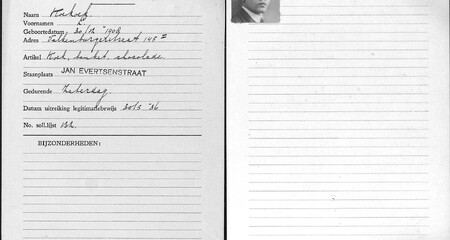 Naam Kokoek
Voornamen L
Geboortedatum 20/12 - 1908
Adres Valkenburgerstraat 148 II
Artikel Koek, banket, chocolade.
Staanplaats JAN EVERTSENSTRAAT
Gedurende Zaterdag.
Datum uitreiking legitimatiebewijs 20/3 '36
No. soll.lijst
BIJZONDERHEDEN: